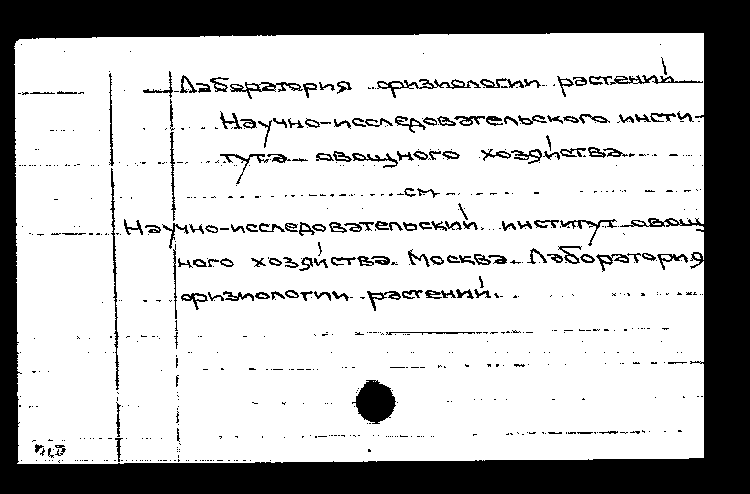 Лаборатория физиологии растений
Научно-исследовательского инсти-
тута овощного хозяйства
см
Научно-исследовательский институт овощ
ного хозяйства. Москва. Лаборатория
физиологии растений.